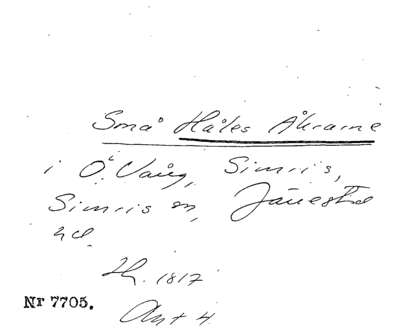 Små Håles Åkrarne
i Ö. Vång, Simris,
Simris sn, Järrestad
hd.
Lh. 1817
Nr 7705.
Akt 4